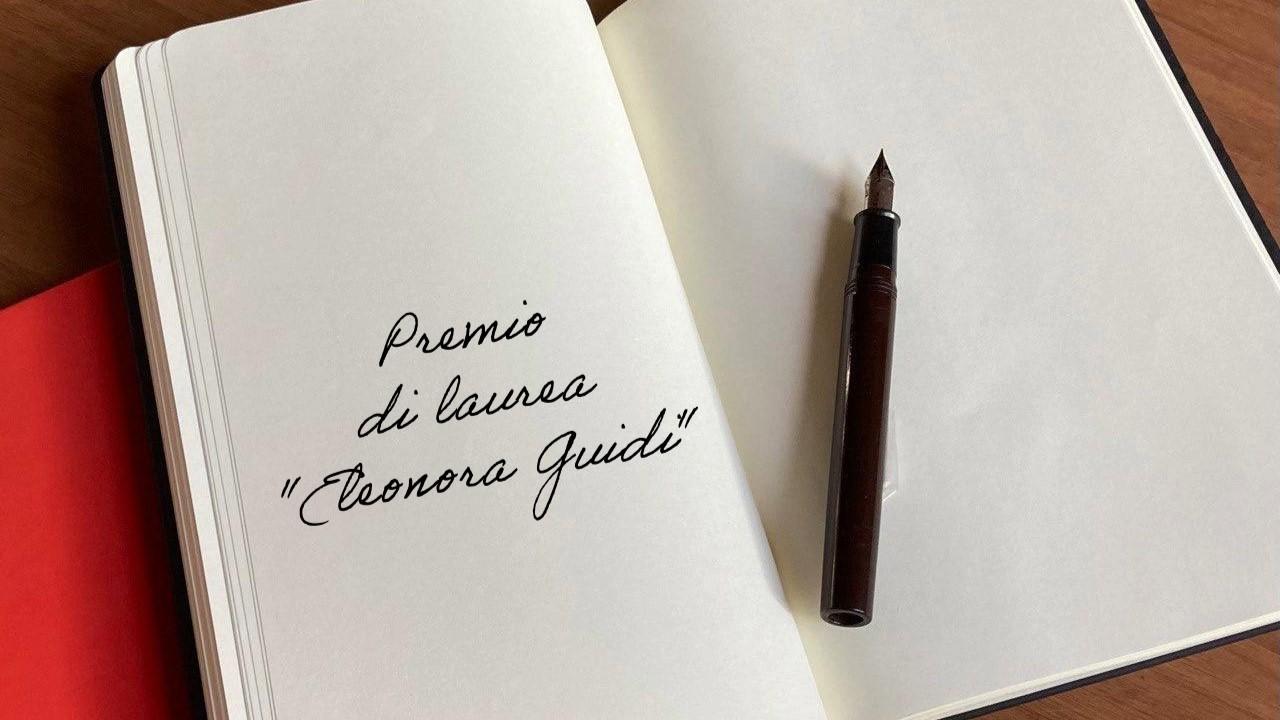 Premio
di laurea
"Eleonora Guidi"